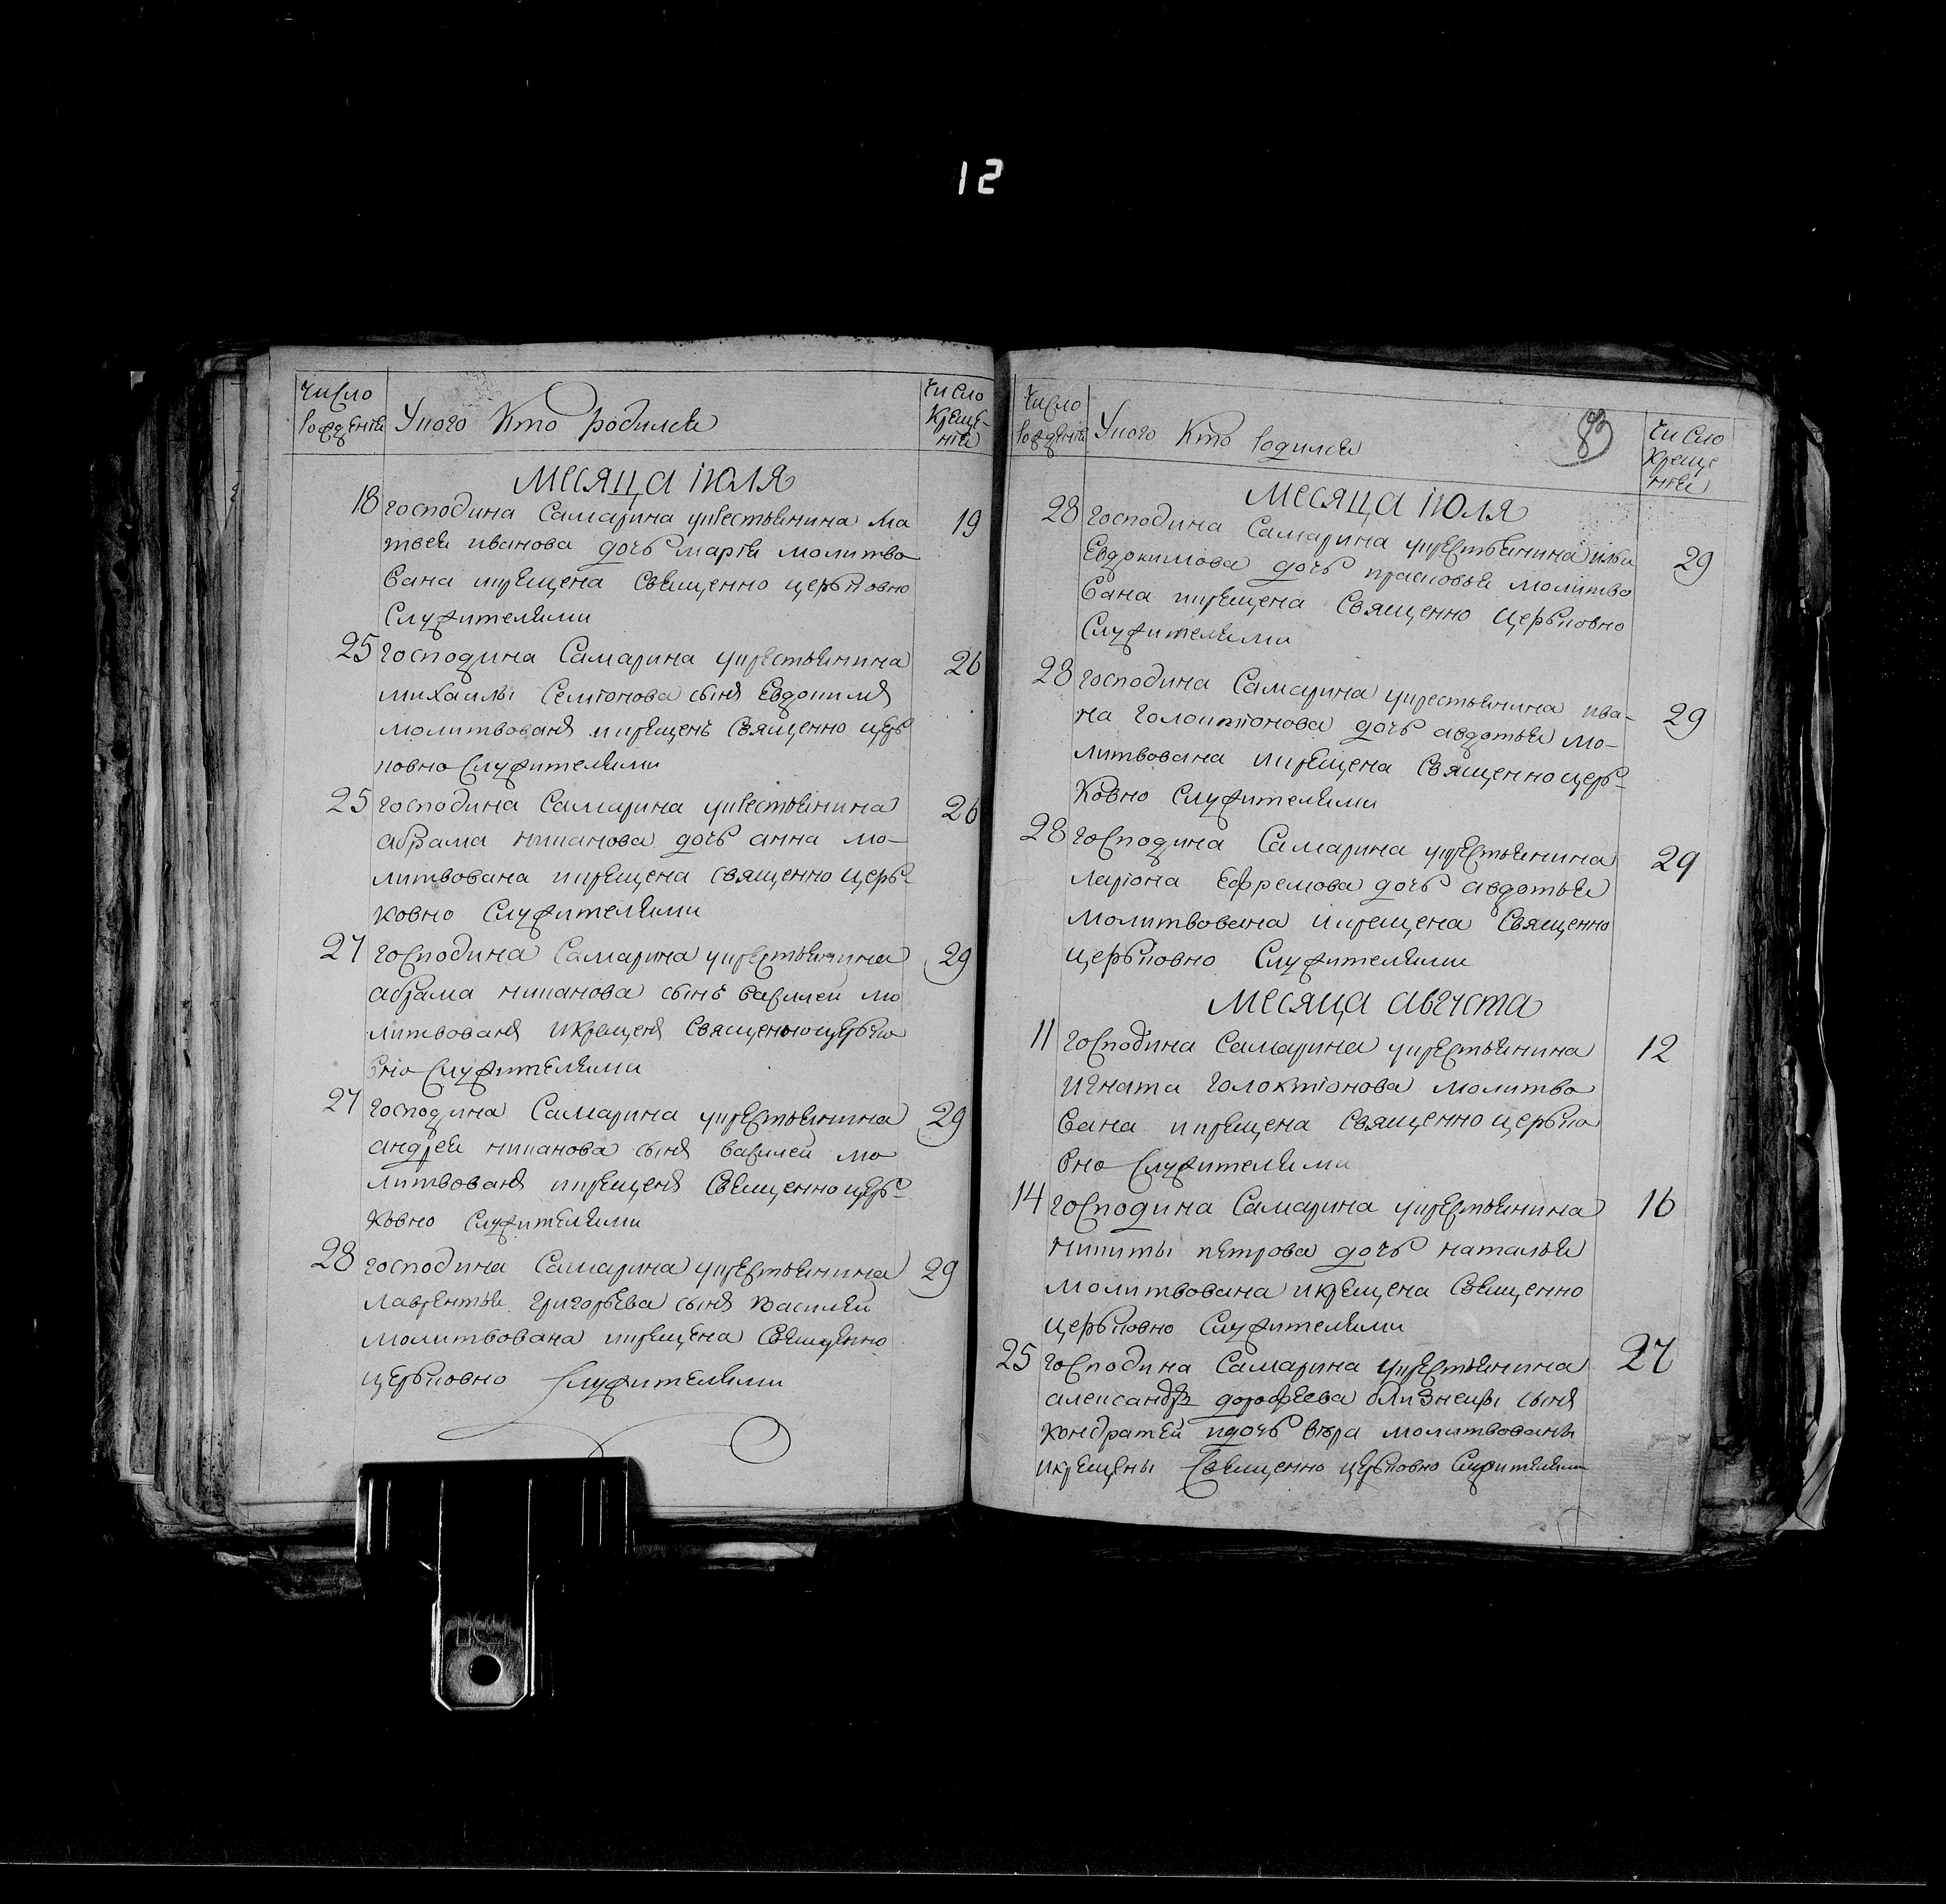 12
Число рожденія
У кого кто родился
Число крещенія
Месяца июля
18 господина Самарина укрестьянина ма 19
твея иванова дочь марія молитво
вана икрещена священно церьковно
служителями
25 господина Самарина укрестьянина 26
михаилы Семіонова сынъ Евдокимъ
молитвованъ икрещенъ священно церь
ковно служителями
25 господина Самарина укрестьянина 26
абрама никанова дочь анна мо-
литвована икрещена священно церь-
ковно служителями
27 господина Самарина укрестьянина 29
абрама никанова сынъ василей мо
литвованъ икрещенъ священноцерько
вно служителями
27 господина Самарина укрестьянина 29
андрея никанова сынъ василей мо
литвованъ икрещенъ священно церь-
ковно служителями
28 господина Самарина укрестьянина 29
лаврентья григорьева сынъ василей
молитвована икрещена священно
церьковно служителями
Число рожденія
У кого кто родился
83
Число крещения
Месяца июля
28 господина Самарина укрестьянина ильи 29
Евдокимова дочь прасковья молитво
вана икрещена священно церьковно
служителями
28 господина Самарина укрестьянина ива- 29
на голоктіонова дочь авдотья мо-
литвована икрещена священно церь-
ковно служителями
28 господина Самарина укрестьянина 29
ларіона ефремова дочь авдотья
молитвована икрещена священно
церьковно служителями
Месяца августа
11 господина Самарина укрестьянина 12
игната голоктіонова молитво
вана икрещена священно церько
вно служителями
14 господина Самарина укрестьянина 16
никиты петрова дочь наталья
молитвована икрещена священно
церьковно служителями
25 господина Самарина укрестьянина 27
александр дорофеева близнецы сынъ
кондратей идочь вера молитвованы
икрещены священно церьковно служителями